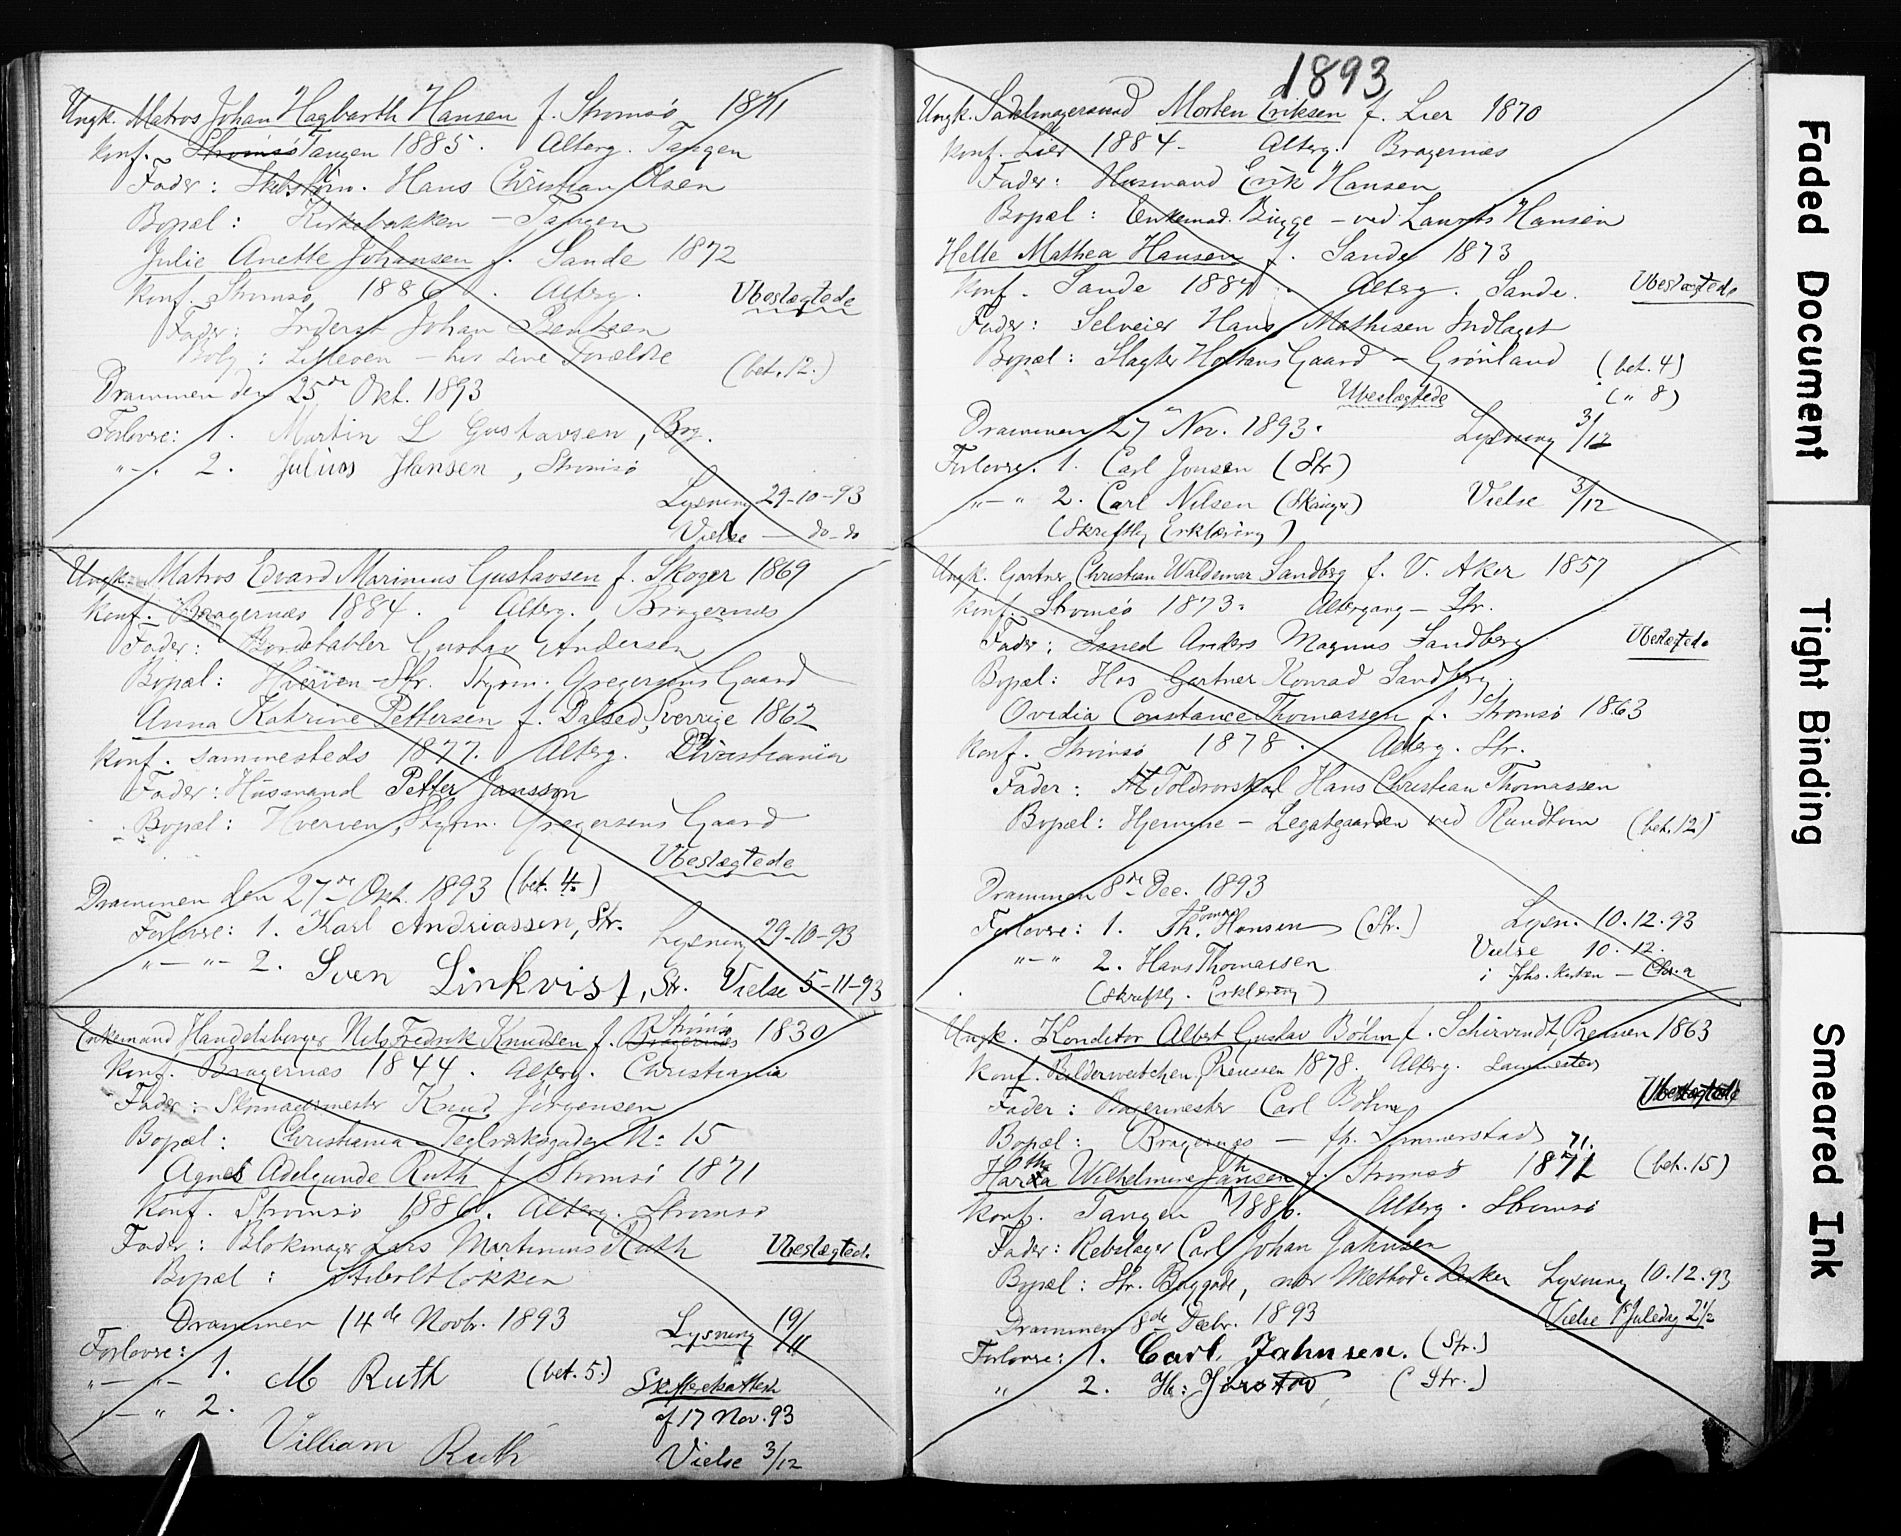 Ungk. Matros Johan Hagbarth Hansen f. Strømsø 1871
Konf. Strømsø Tangen 1885. Alterg. Tangen
Fader: Skibstøm. Hans Christian Olsen
Bopæl: Kirkebakken - Tangen
Julie Anette Johansen f. Sande 1872
Konf. Strømsø 1886. Alterg.
Ubeslægtede
Fader: Inderst Johan Bentsen
Bolg: - hos sine Forældre
(bet. 12.)
Drammen den 25de Okt. 1893
Forlovere: 1. Martin L Gustavsen, Brg.
"-. 2. Julius Hansen, Strømsø
Lysning 29-10-93
Vielse - do-do
Ungk. Matros Edvard Marinius Gustavsen f. Skoger 1869
Konf. Bragernæs 1884. Alterg. Bragernæs
Fader: Konstabler Gustav Andersen
Bopæl: Hverven - Str. Styrm. Gregersens Gaard
Anna Katrine Pettersen f. Dalsed, Sverrige 1862
Konf. sammesteds 1877. Alterg. Christiania
Fader: Husmand Petter Jansson
Bopæl: Hverven, Styrm. Gregersens Gaard
Ubeslægtede
Drammen den 27de Okt. 1893 (bet. 4.)
Forlovre: 1. Karl Andriassen, Str.
Lysning 29-10-93
"- "- 2. Sven Linkvist, Str. Vielse 5-11-93
Enkemand Handelsborger Nils Fredrik Knudsen f. Bragernæs Strømsø 1830
Konf. Bragernæs 1844. Alterg. Christiania
Fader: Skomagermester Knud Jörgensen
Bopæl: Christiania - Teglverksgaden No 15
Agnes Adelgunde Ruth f. Strømsø 1871
Konf. Strømsø 1886. Alterg. Strømsø
Fader: Blokmager Lars Martinius Ruth
Ubeslægted.
Bopæl: Stiboltløkken
Drammen 14de Novbr. 1893
Lysning 19/11
Forlovre:
"- "- 1. M Ruth (bet. 5.)
Skifteskatten
af 17 Nov. 93
"- " 2. Villiam Ruth
Vielse 3/12
1893
Ungk. Sadelmagersvend Morten Eriksen f. Lier 1870
Konf. Lier 1884 - Alterg. Bragernæs
Fader: Husmand Erik Hansen
Bopæl: Enkemad. Bugge - ved Laurits Hansen
Helle Mathea Hansen f. Sande 1873
Konf. Sande 1887. Alterg. Sande.
Ubeslægtede
Fader: Selveier Hans Mathisen Indlaget
Bopæl: Slagter Holtans Gaard - Grønland
(bet. 4)
Ubeslægtede
(" 8)
Drammen 27 Nov. 1893.
Lysning 3/12
Forlovre. 1. Carl Jonsen (Str)
"- " 2. Carl Nilsen (Skoger)
Vielse 3/12
(Skriftlig Erklæring)
Ungk. Gartner Christian Waldemar Sandberg f. V. Aker 1857
Konf. Strømsø 1873. Altergang - Str.
Fader: Smed Anders Magnus Sandberg
Ubeslægtede
Bopæl: Hos Gartner Konrad Sandberg.
Ovidia Constance Thomassen f. Strømsø 1863
Konf. Strømsø 1878. Alterg. Str.
Fader: Toldrorskarl Hans Christian Thomassen
Bopæl: Hjemme - Legatgaarden ved Rundtom (bet. 12)
Drammen 8de Dec. 1893
Forlovre: 1. Th. Hansen (Str.)
Lysn. 10.12.93
"- " 2. Hans Thomassen
Vielse 10.12.
i Johs. kirken - Chr.a
(Skriftlig. Erklæring)
Ungk. Konditor Albet Gustav Böhm f. Schirvindt, Preusen 1863
Konf. Bilderweitchen, Preussen 1878. Alterg. sammested
Ubeslægtede
Fader: Bagermester Carl Böhm
Bopæl: Bragernes - fh. Simmerstad
71.
Martha Wilhelmine Jahnsen f. Strømsø 1871
(bet. 15)
Konf. Tangen 1886. Alterg. Strømsø
Fader: Rebslager Carl Johan Jahnsen
Bopæl: Str. Baggade, nær Methodi. kirken
Lysning 10.12.93
Drammen 8de Decbr. 1893
Vielse 1ste Juledag 2½
Forlovre: 1. Carl Jahnsen. (Str.)
" 2. (Str.)
Faded Document
Tight Binding
Smeared Ink